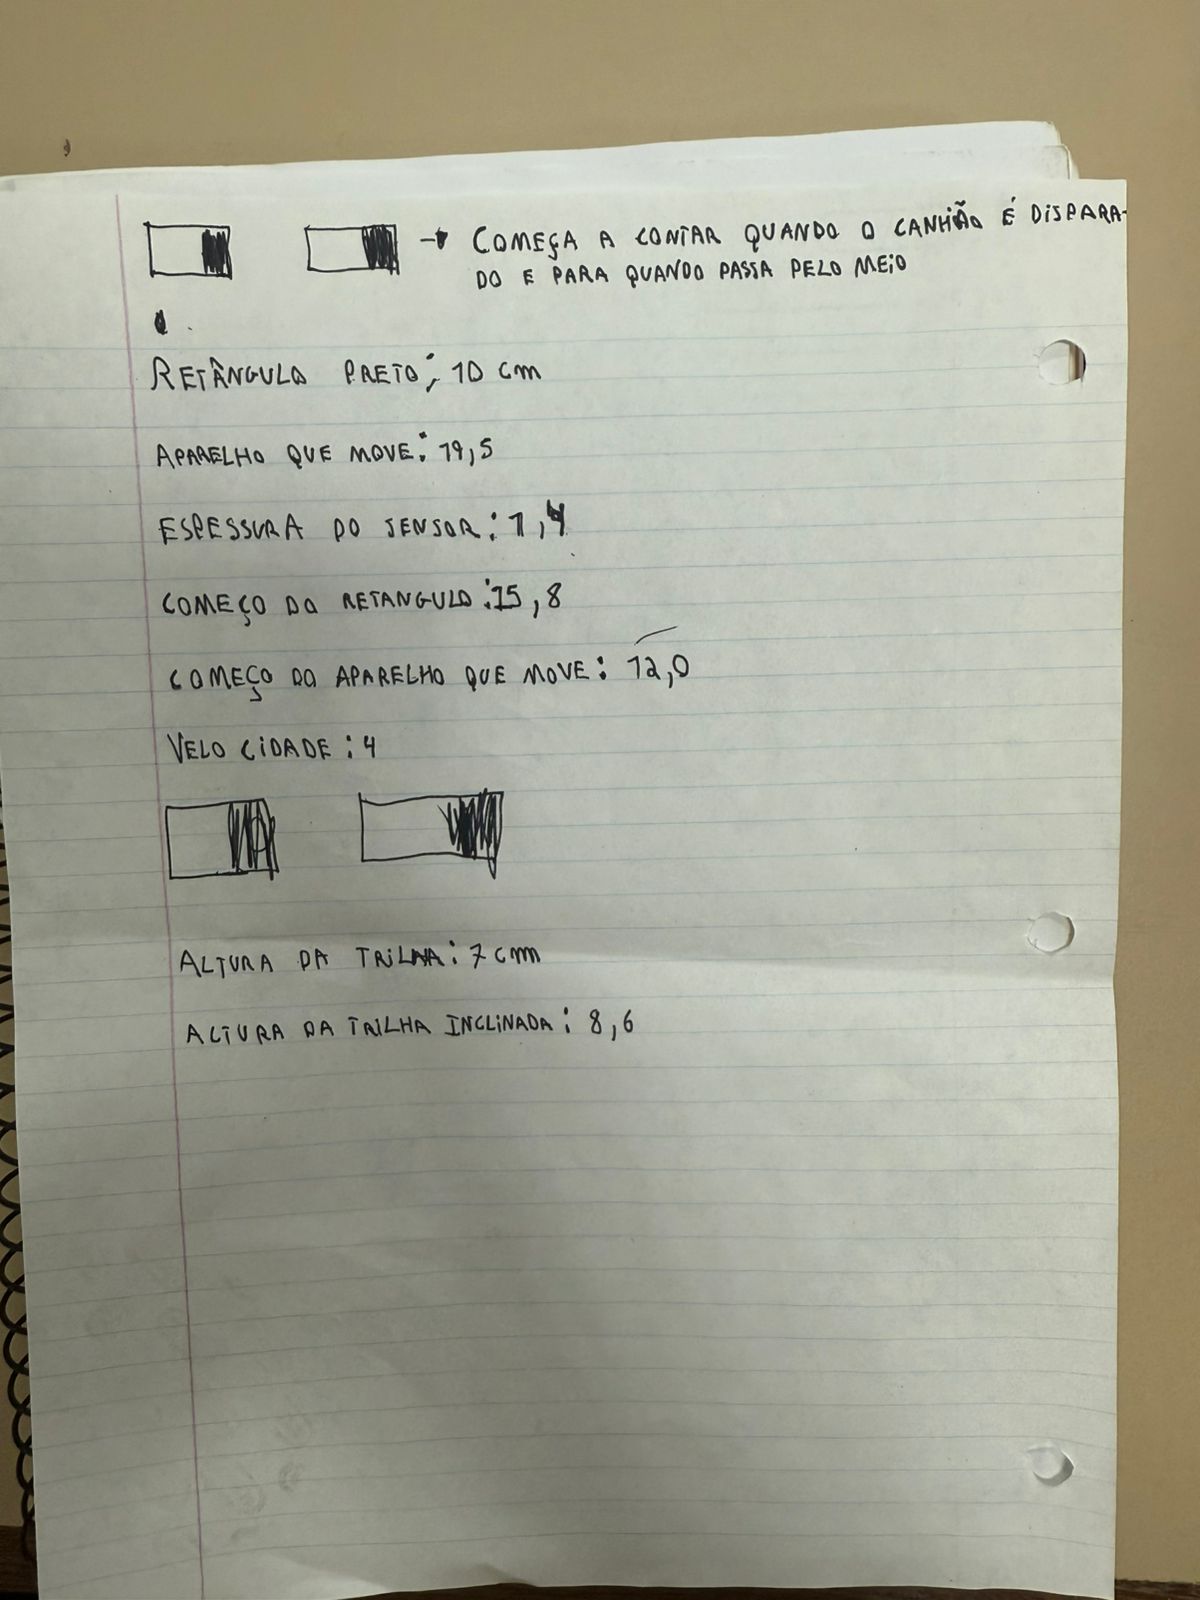 → COMEÇA A CONTAR QUANDO O CANHÃO É DISPARA-
DO E PARA QUANDO PASSA PELO MEIO
RETÂNGULO PRETO: 10 cm
APARELHO QUE MOVE: 19,5
ESPESSURA DO SENSOR: 1,4
COMEÇO DO RETANGULO: 15,8
COMEÇO DO APARELHO QUE MOVE: 12,0
VELOCIDADE: 4
ALTURA DA TRILHA: 7 cm
ALTURA DA TRILHA INCLINADA: 8,6